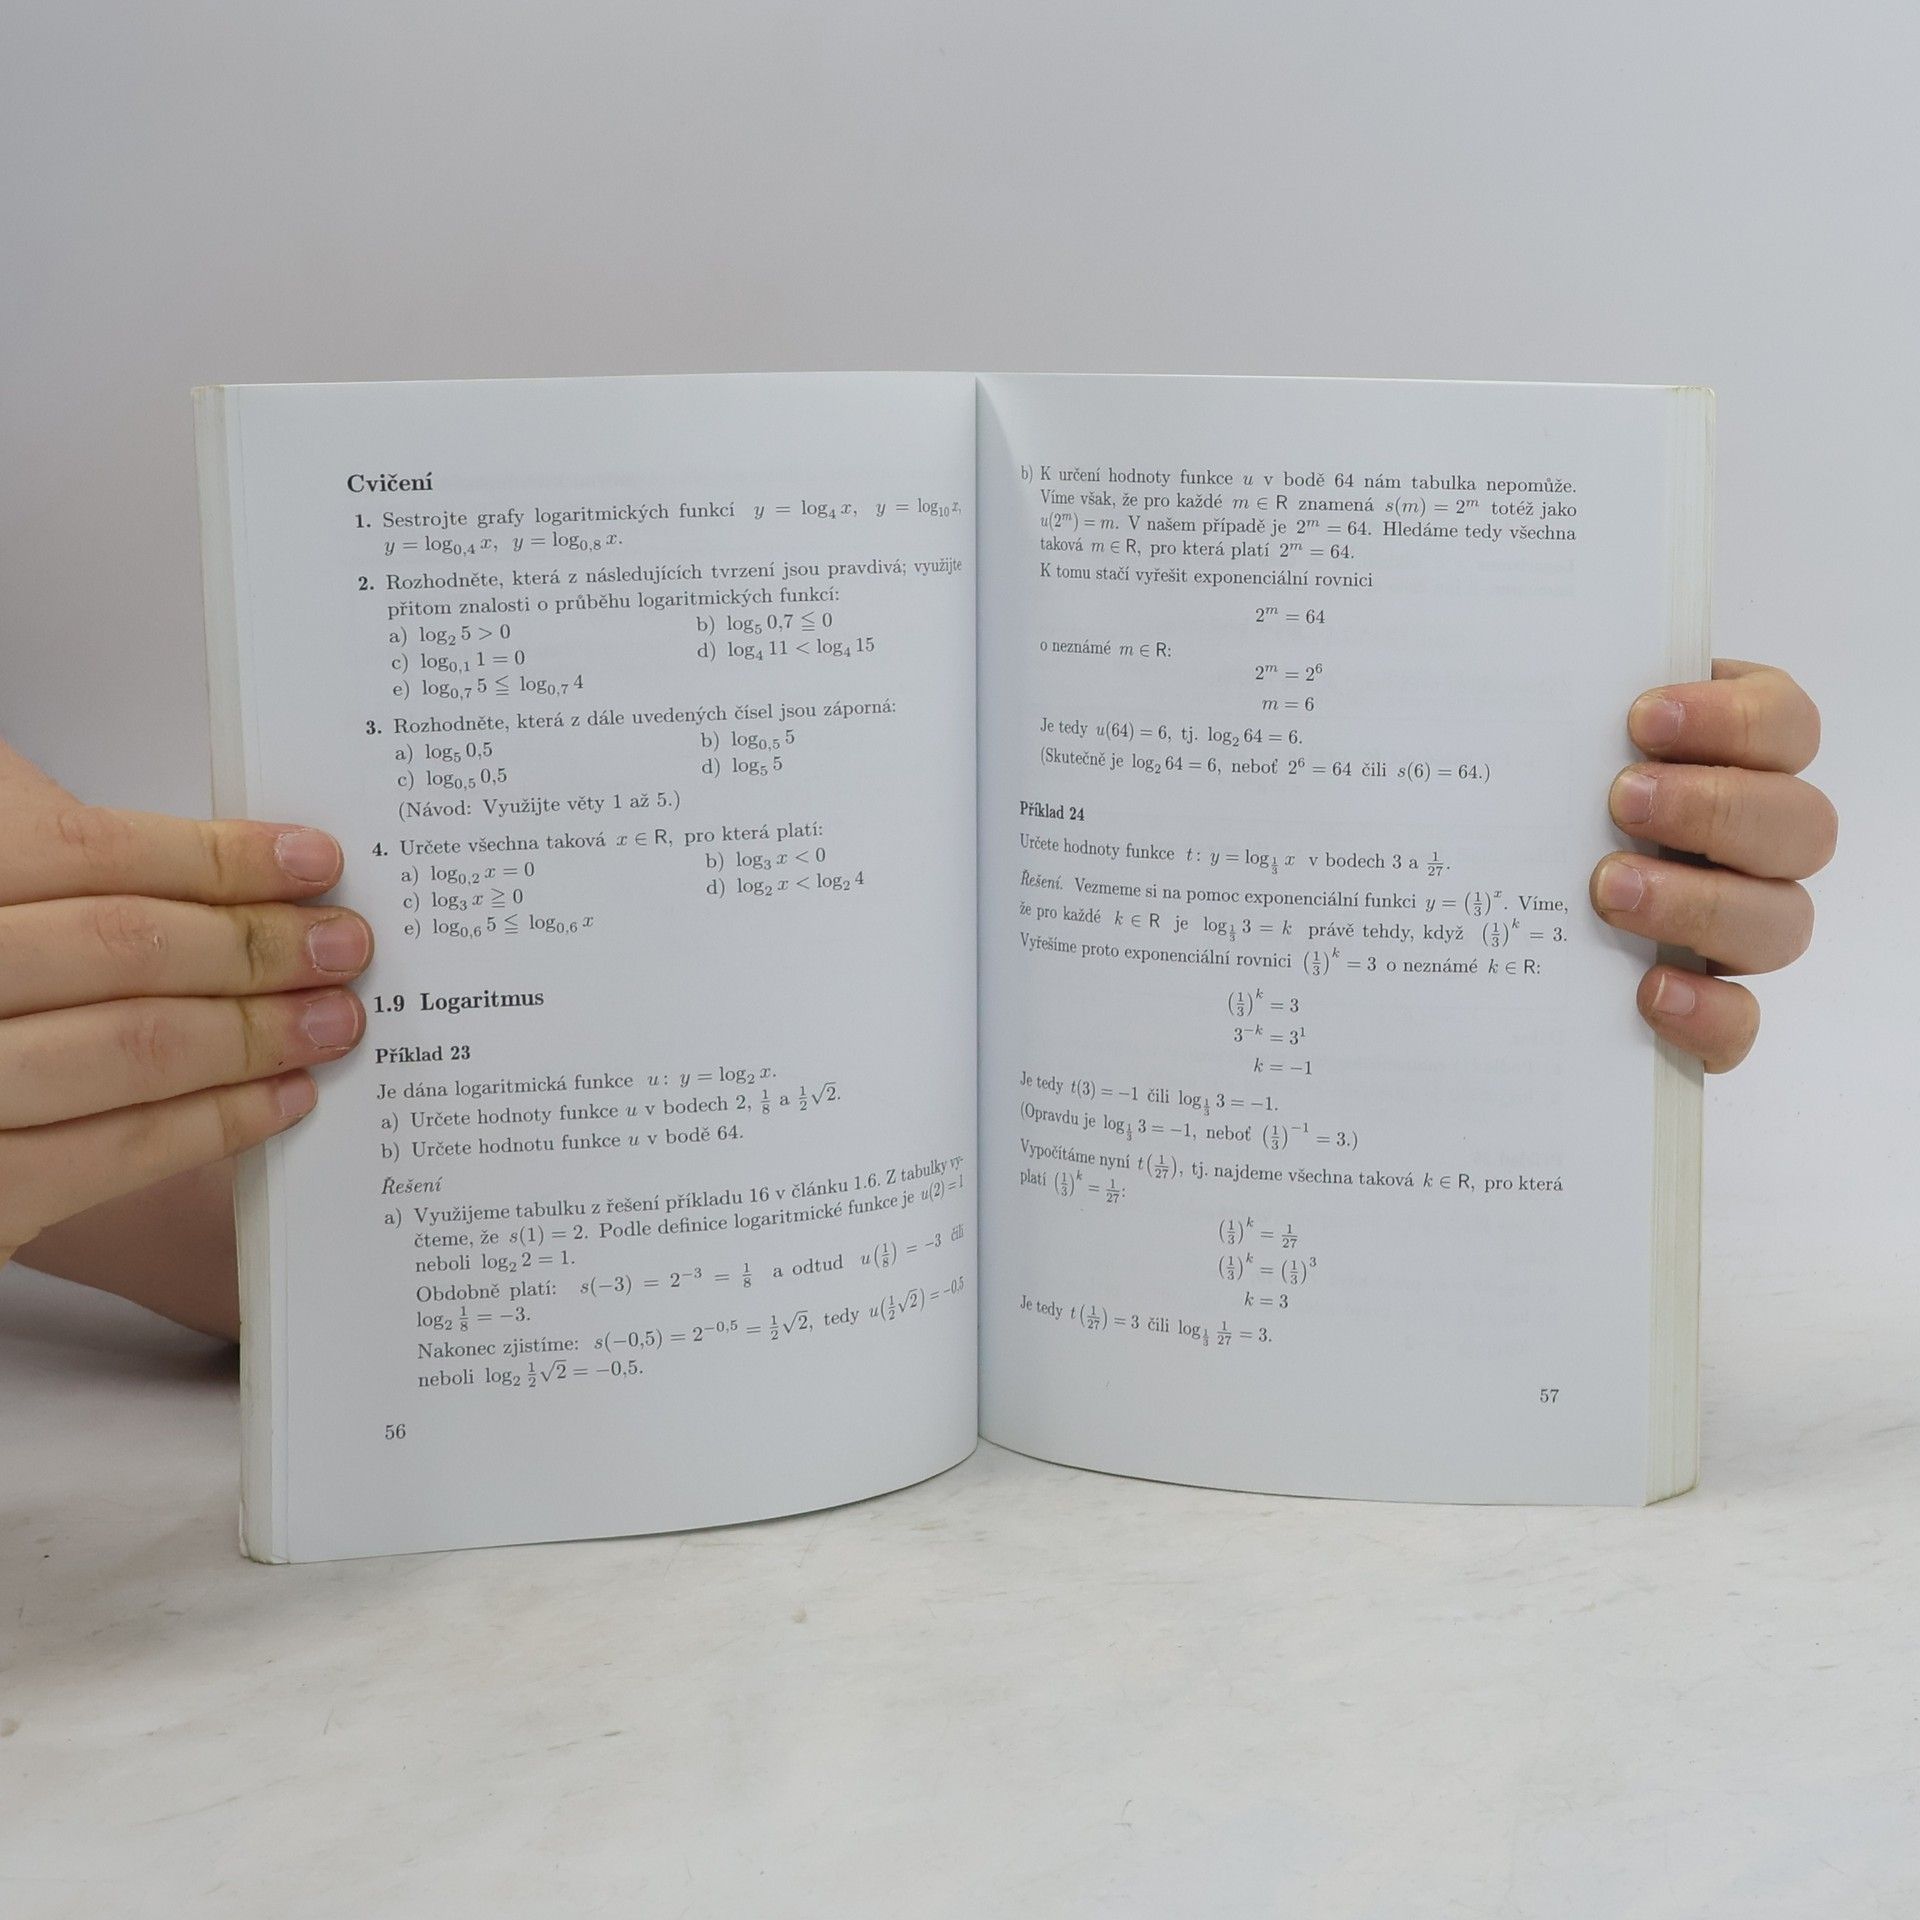 Cvičení
1. Sestrojte grafy logaritmických funkcí y = log₄ x, y = log₁₀ x,
y = log₀,₄ x, y = log₀,₈ x.
2. Rozhodněte, která z následujících tvrzení jsou pravdivá; využijte
přitom znalosti o průběhu logaritmických funkcí:
a) log₂ 5 > 0 b) log₅ 0,7 ≦ 0
c) log₀,₁ 1 = 0 d) log₄ 11 < log₄ 15
e) log₀,₇ 5 ≦ log₀,₇ 4
3. Rozhodněte, která z dále uvedených čísel jsou záporná:
a) log₅ 0,5 b) log₀,₅ 5
c) log₀,₅ 0,5 d) log₅ 5
(Návod: Využijte věty 1 až 5.)
4. Určete všechna taková x ∈ R, pro která platí:
a) log₀,₂ x = 0 b) log₃ x < 0
c) log₃ x ≧ 0 d) log₂ x < log₂ 4
e) log₀,₆ 5 ≦ log₀,₆ x
1.9 Logaritmus
Příklad 23
Je dána logaritmická funkce u: y = log₂ x.
a) Určete hodnoty funkce u v bodech 2, 1/8 a 1/2√2.
b) Určete hodnotu funkce u v bodě 64.
Řešení
a) Využijeme tabulku z řešení příkladu 16 v článku 1.6. Z tabulky vy-
čteme, že s(1) = 2. Podle definice logaritmické funkce je u(2) = 1
neboli log₂ 2 = 1.
Obdobně platí: s(−3) = 2⁻³ = 1/8 a odtud u(1/8) = −3 čili
log₂ 1/8 = −3.
Nakonec zjistíme: s(−0,5) = 2^(−0,5) = 1/2√2, tedy u(1/2√2) = −0,5
neboli log₂ 1/2√2 = −0,5.
56
b) K určení hodnoty funkce u v bodě 64 nám tabulka nepomůže.
Víme však, že pro každé m ∈ R znamená s(m) = 2ᵐ totéž jako
u(2ᵐ) = m. V našem případě je 2ᵐ = 64. Hledáme tedy všechna
taková m ∈ R, pro která platí 2ᵐ = 64.
K tomu stačí vyřešit exponenciální rovnici
2ᵐ = 64
o neznámé m ∈ R:
2ᵐ = 2⁶
m = 6
Je tedy u(64) = 6, tj. log₂ 64 = 6.
(Skutečně je log₂ 64 = 6, neboť 2⁶ = 64 čili s(6) = 64.)
Příklad 24
Určete hodnoty funkce t: y = log_(1/3) x v bodech 3 a 1/27.
Řešení. Vezmeme si na pomoc exponenciální funkci y = (1/3)ˣ. Víme,
že pro každé k ∈ R je log_(1/3) 3 = k právě tehdy, když (1/3)ᵏ = 3.
Vyřešíme proto exponenciální rovnici (1/3)ᵏ = 3 o neznámé k ∈ R:
(1/3)ᵏ = 3
3⁻ᵏ = 3¹
k = −1
Je tedy t(3) = −1 čili log_(1/3) 3 = −1.
(Opravdu je log_(1/3) 3 = −1, neboť (1/3)⁻¹ = 3.)
Vypočítáme nyní t(1/27), tj. najdeme všechna taková k ∈ R, pro která
platí (1/3)ᵏ = 1/27:
(1/3)ᵏ = 1/27
(1/3)ᵏ = (1/3)³
k = 3
Je tedy t(1/27) = 3 čili log_(1/3) 1/27 = 3.
57